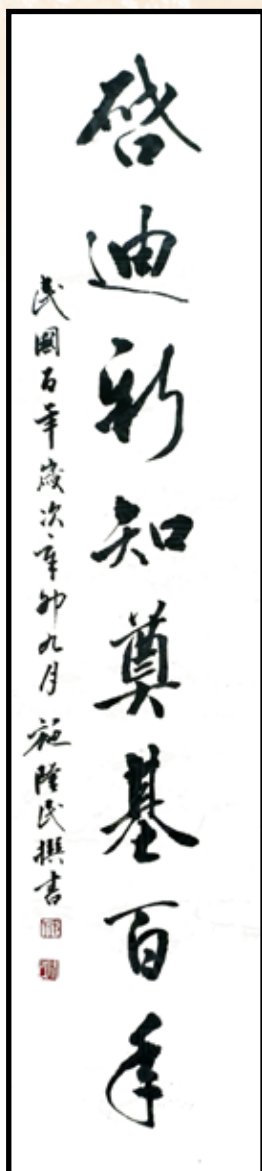 啓迪新知奠基百年
民國百年歲次辛卯九月 施隆民撰書